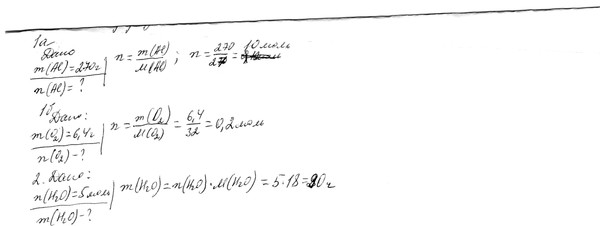 1а
Дано
m(Al)=270г
n(Al)=?
n = m(Al)/M(Al) ; n = 270/27 = 10 моль
1б
Дано:
m(O₂)=6,4г
n(O₂)-?
n = m(O₂)/M(O₂) = 6,4/32 = 0,2 моль
2. Дано:
n(H₂O)=5 моль
m(H₂O)-?
m(H₂O)=n(H₂O)·M(H₂O)=5·18=90 г